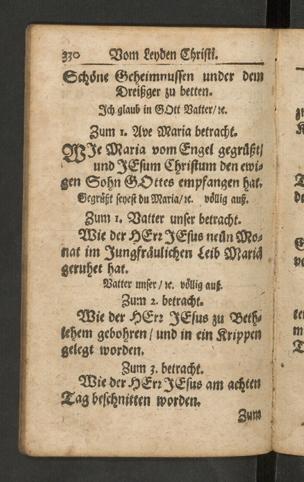 330 Vom Leyden Christi.
Schöne Geheimnussen under dem
Dreißger zu betten.
Ich glaub in GOtt Vatter/ ꝛc.
Zum 1. Ave Maria betracht.
WIe Maria vom Engel gegrüßt/
und JEsum Christum den ewi-
gen Sohn GOttes empfangen hat.
Gegrüßt seyest du Maria/ ꝛc. völlig auß.
Zum 1. Vatter unser betracht.
Wie der HErr JEsus neün Mo-
nat im Jungfräulichen Leib Mariä
geruhet hat.
Vatter unser/ ꝛc. völlig auß.
Zum 2. betracht.
Wie der HErr JEsus zu Beth-
lehem gebohren/ und in ein Krippen
gelegt worden.
Zum 3. betracht.
Wie der HErr JEsus am achten
Tag beschnitten worden.
Zum